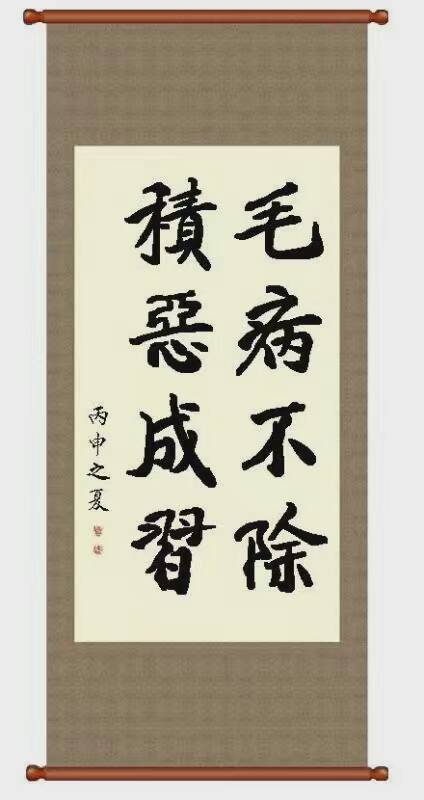 毛病不除
積惡成習
丙申之夏